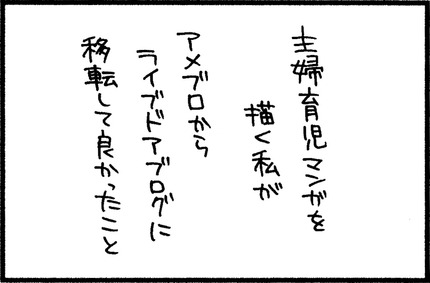 主婦育児マンガを
描く私が
アメブロから
ライブドアブログに
移転して良かったこと